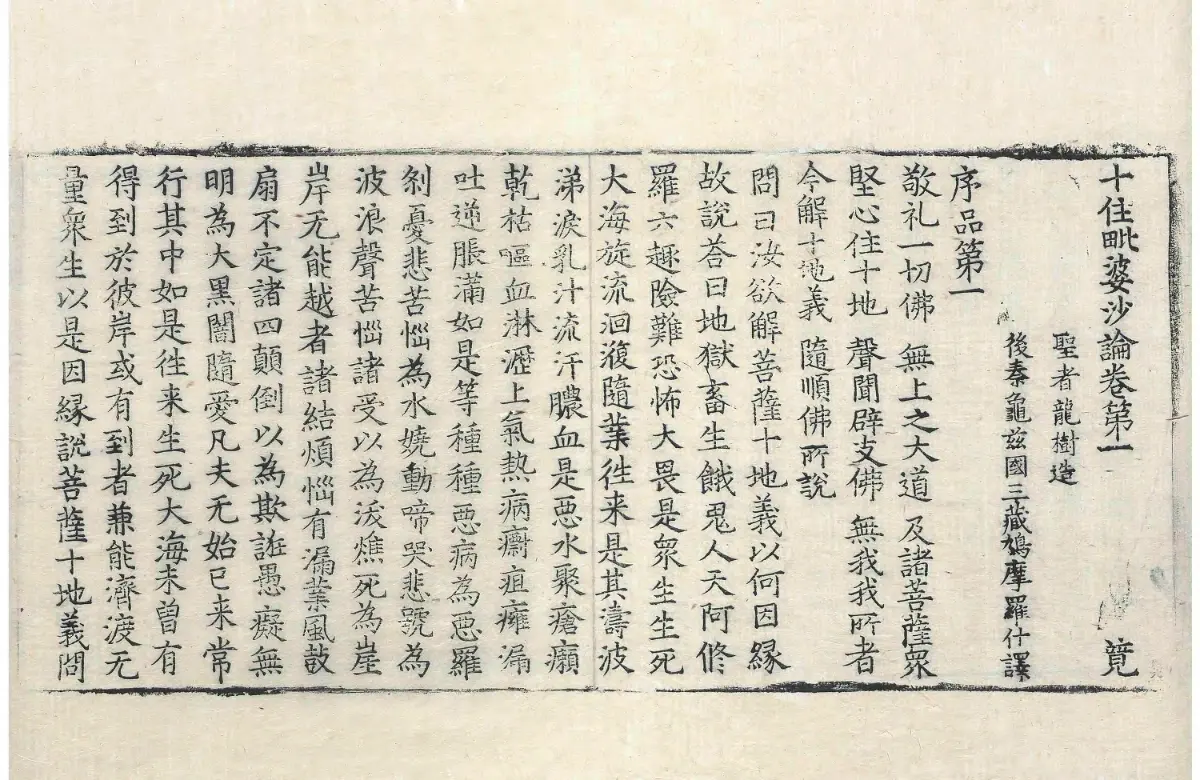 十住毗婆沙論卷第一 竟
聖者龍樹造
後秦龜兹國三藏鳩摩羅什譯
序品第一
敬礼一切佛 無上之大道 及諸菩薩衆
堅心住十地 聲聞辟支佛 無我我所者
今解十地義 隨順佛所說
問曰汝欲解菩薩十地義以何因緣
故說荅曰地獄畜生餓鬼人天阿脩
羅六趣險難恐怖大畏是衆生生死
大海旋流洄澓隨業徃来是其濤波
涕淚乳汁流汗膿血是惡水聚瘡癩
乾枯嘔血淋瀝上氣熱病瘭疽癰漏
吐逆脹滿如是等種種惡病為惡羅
剎憂悲苦惱為水嬈動啼哭悲號為
波浪聲苦惱諸受以為沃燋死為崖
岸无能越者諸結煩惱有漏業風鼓
扇不定諸四顛倒以為欺誑愚癡無
明為大黑闇隨愛凡夫无始已来常
行其中如是徃来生死大海未曾有
得到於彼岸或有到者兼能濟渡无
量衆生以是因緣說菩薩十地義問